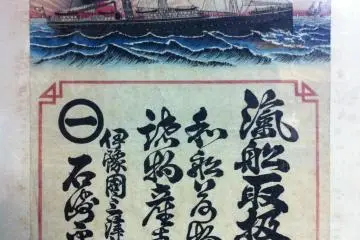 滊船取扱
和船荷物
諸物産
伊豫國三津
一
石崎